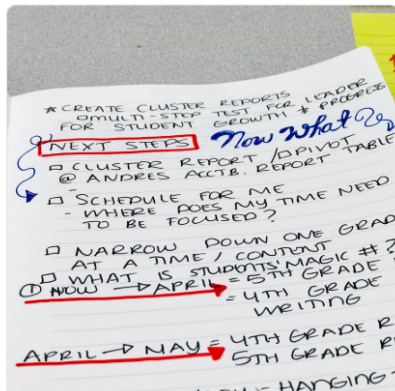 * CREATE CLUSTER REPORTS
□ MULTI-STEP TEST FOR LEADER
FOR STUDENT GROWTH & PROGRESS
NEXT STEPS
Now What
□ CLUSTER REPORT / □ PIVOT
@ ANDRES ACCTB. REPORT TABLE
-
□ SCHEDULE FOR ME
- WHERE DOES MY TIME NEED
TO BE FOCUSED?
□ NARROW DOWN ONE GRAD
AT A TIME / CONTENT
□ WHAT IS STUDENTS' MAGIC #?
① NOW → APRIL = 5TH GRADE
= 4TH GRADE
WRITING
APRIL → MAY = 4TH GRADE R
5TH GRADE R
= HANGING